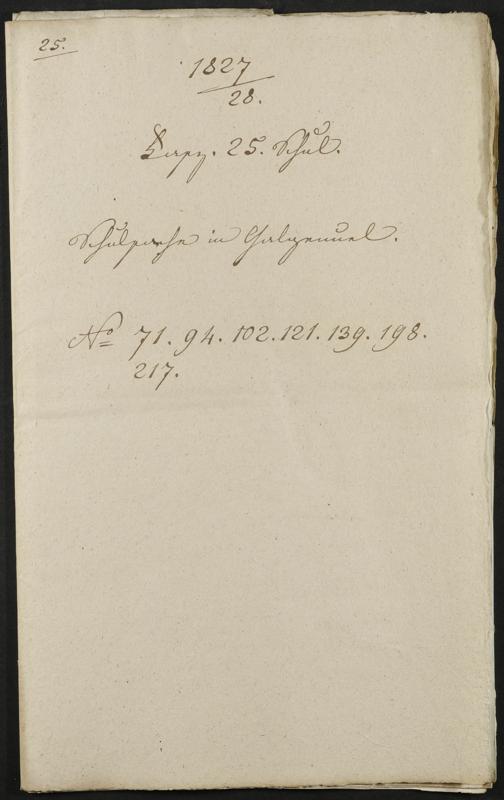 25.
1827
28.
Fasz. 25. Schul.
Schulsache in Galgenuel.
No 71. 94. 102. 121. 139. 198.
217.